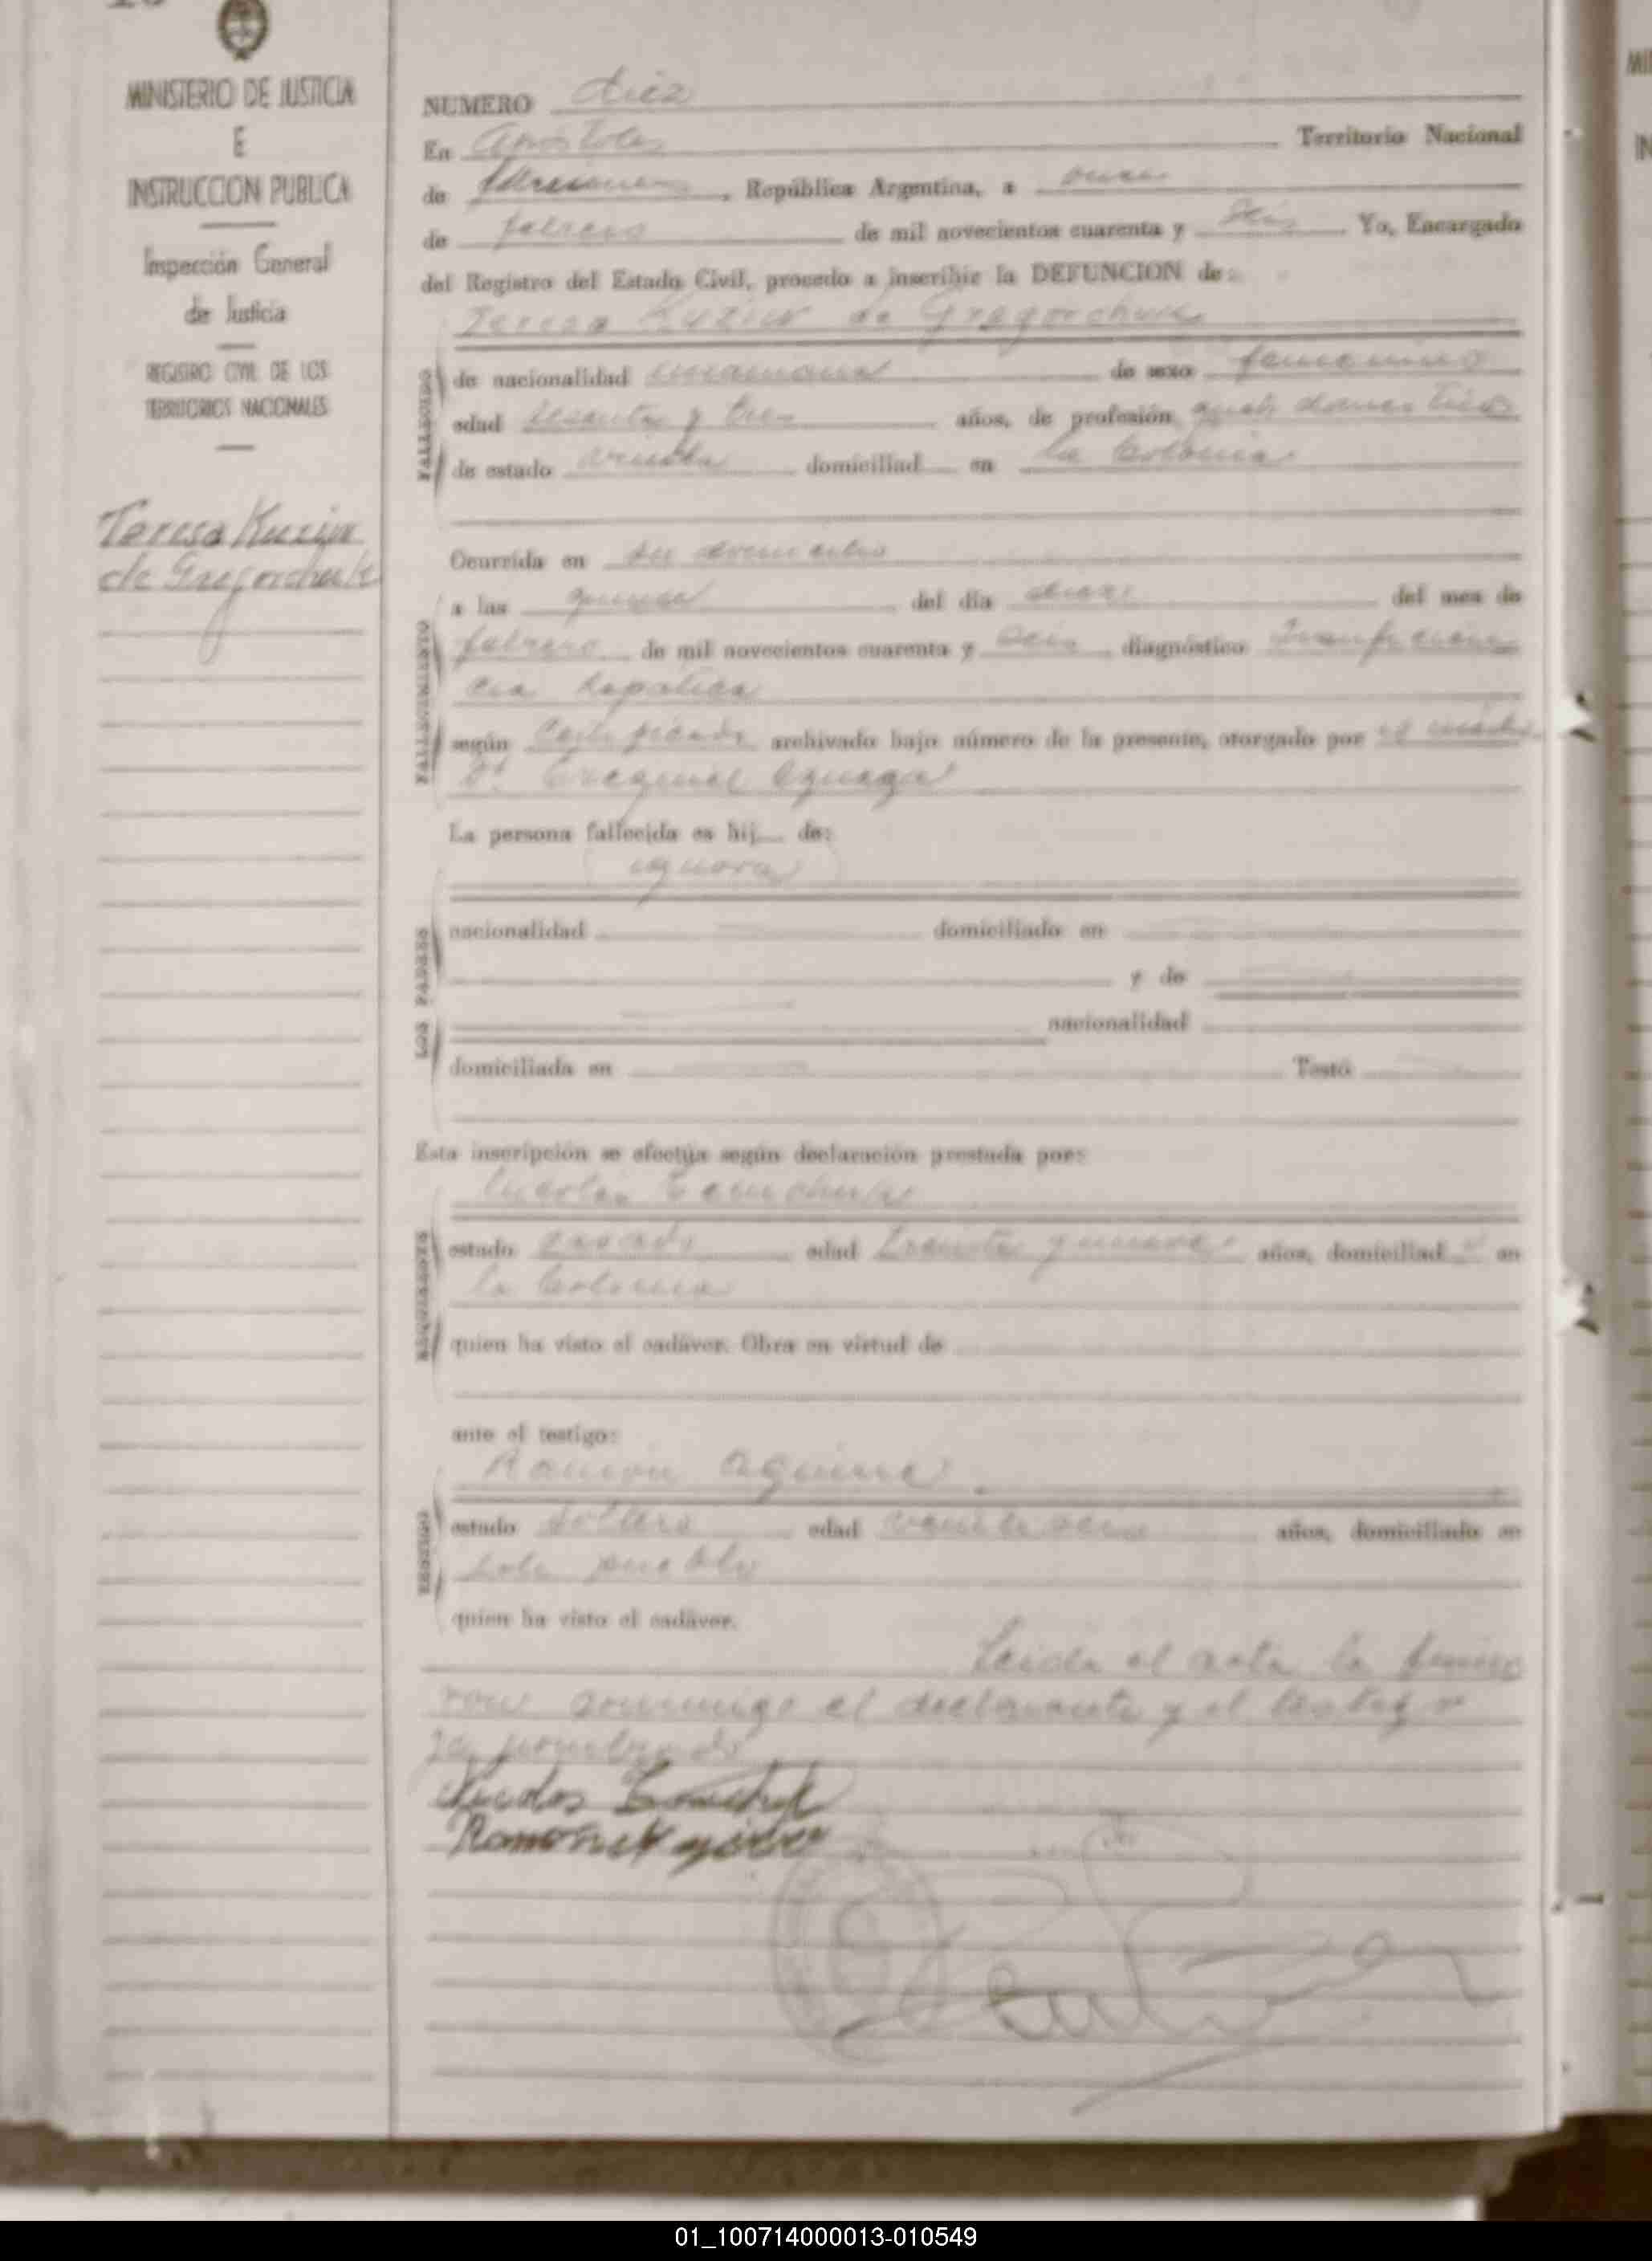 MINISTERIO DE JUSTICIA
E
INSTRUCCION PUBLICA
Inspección General
de Justicia
REGISTRO CIVIL DE LOS
TERRITORIOS NACIONALES
Teresa Kuziw
de Gregorchuk
NUMERO diez
En Apóstoles Territorio Nacional
de Misiones, República Argentina, a once
de febrero de mil novecientos cuarenta y seis Yo, Encargado
del Registro del Estado Civil, procedo a inscribir la DEFUNCION de:
Teresa Kuziw de Gregorchuk
FALLECIDO
de nacionalidad de sexo femenino
edad sesenta y tres años, de profesión queh domesticos
de estado viuda domiciliad en la Colonia
FALLECIMIENTO
Ocurrida en su domicilio
a las quince del día diez del mes de
febrero de mil novecientos cuarenta y seis, diagnóstico
cia hepatica
según Certificado archivado bajo número de la presente, otorgado por el medico
Dr. Ezequiel
La persona fallecida es hij de:
ignora
LOS PADRES
nacionalidad domiciliado en
y de
nacionalidad
domiciliada en Testó
Esta inscripción se efectúa según declaración prestada por:
Nicolas
REQUIRENTE
estado casado edad treinta y nueve años, domiciliad o en
la Colonia
quien ha visto el cadáver. Obra en virtud de
ante el testigo:
Ramon Aguirre
TESTIGO
estado soltero edad veinte seis años, domiciliado en
este pueblo
quien ha visto el cadáver.
Leida el acta la firma
ron conmigo el declarante y el testigo
ya nombrado
Nicolas
Ramon Aguirre
01_100714000013-010549